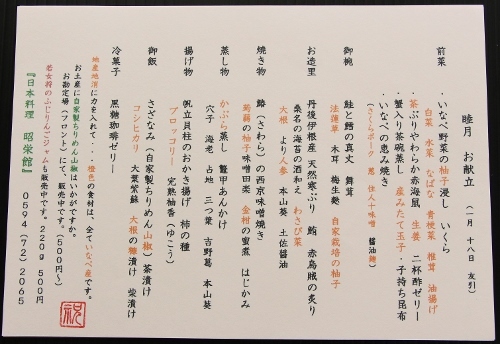 睦月　お献立　（一月　十八日　友引）
前菜　・いなべ野菜の柚子浸し　いくら
白菜　水菜　なばな　青梗菜　椎茸　油揚げ
・茶ぶりやわらか赤海鼠　生姜　二杯酢ゼリー
・蟹入り茶碗蒸し　産みたて玉子・子持ち昆布
・いなべの恵み焼き
（さくらポーク　葱　住人十味噌　醤油麹）
御椀　鮭と鱈の真丈　舞茸
法蓮草　木耳　梅生麩　自家栽培の柚子
お造里　丹後伊根産　天然寒ぶり　鮪　赤烏賊の炙り
桑名の海苔の酒和え　わさび菜
大根　より人参　本山葵　土佐醤油
焼き物　鰆（さわら）の西京味噌焼き
蒟蒻の柚子味噌田楽　金柑の蜜煮　はじかみ
蒸し物　かぶら蒸し　鼈甲あんかけ
穴子　海老　占地　三つ葉　吉野葛　本山葵
揚げ物　帆立貝柱のおかき揚げ　柿の種
ブロッコリー　完熟柚香（ゆこう）
御飯　さざなみ（自家製ちりめん山椒）茶漬け
コシヒカリ　大葉紫蘇　大根の糠漬け　柴漬け
冷菓子　黒糖珈琲ゼリー
地産地消に力を入れて・・橙色の食材は、全ていなべ産です。
お土産に自家製ちりめん山椒はいかがですか。
お勘定場（フロント）にて、販売中です。（５００円〜）
若女将のふじりんごジャムも販売中です。２２０ｇ　５００円
『日本料理　昭栄館』　０５９４（７２）２０６５
祝